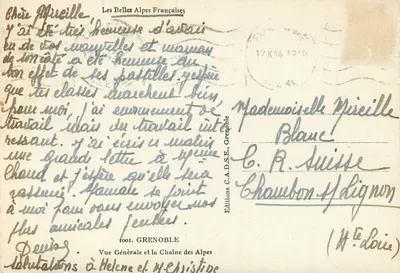 Les Belles Alpes Françaises
Chère Mireille
J'ai été très heureuse d'avoir
eu de vos nouvelles et maman
a été heureuse du
bon effet de ses pastilles. J'espère
que tes classes marchent bien,
pour moi, j'ai énormément de
travail mais du travail inté
ressant. J'ai écris ce matin
une grande lettre à Mme
Chaud et j'espère qu'elle sera
Maman se joint
à moi pour vous envoyer nos
plus amicales pensées.
Denise
salutations à Helene et M. Christine
1001. GRENOBLE
Vue Générale et la Chaîne des Alpes
Editions C.A.D.S.E., Grenoble
Mademoiselle Mireille
Blanc
C. R. Suisse
Chambon s/ Lignon
(Hte Loire)